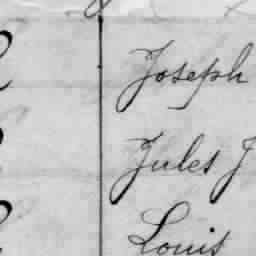 Joseph
Jules J
Louis